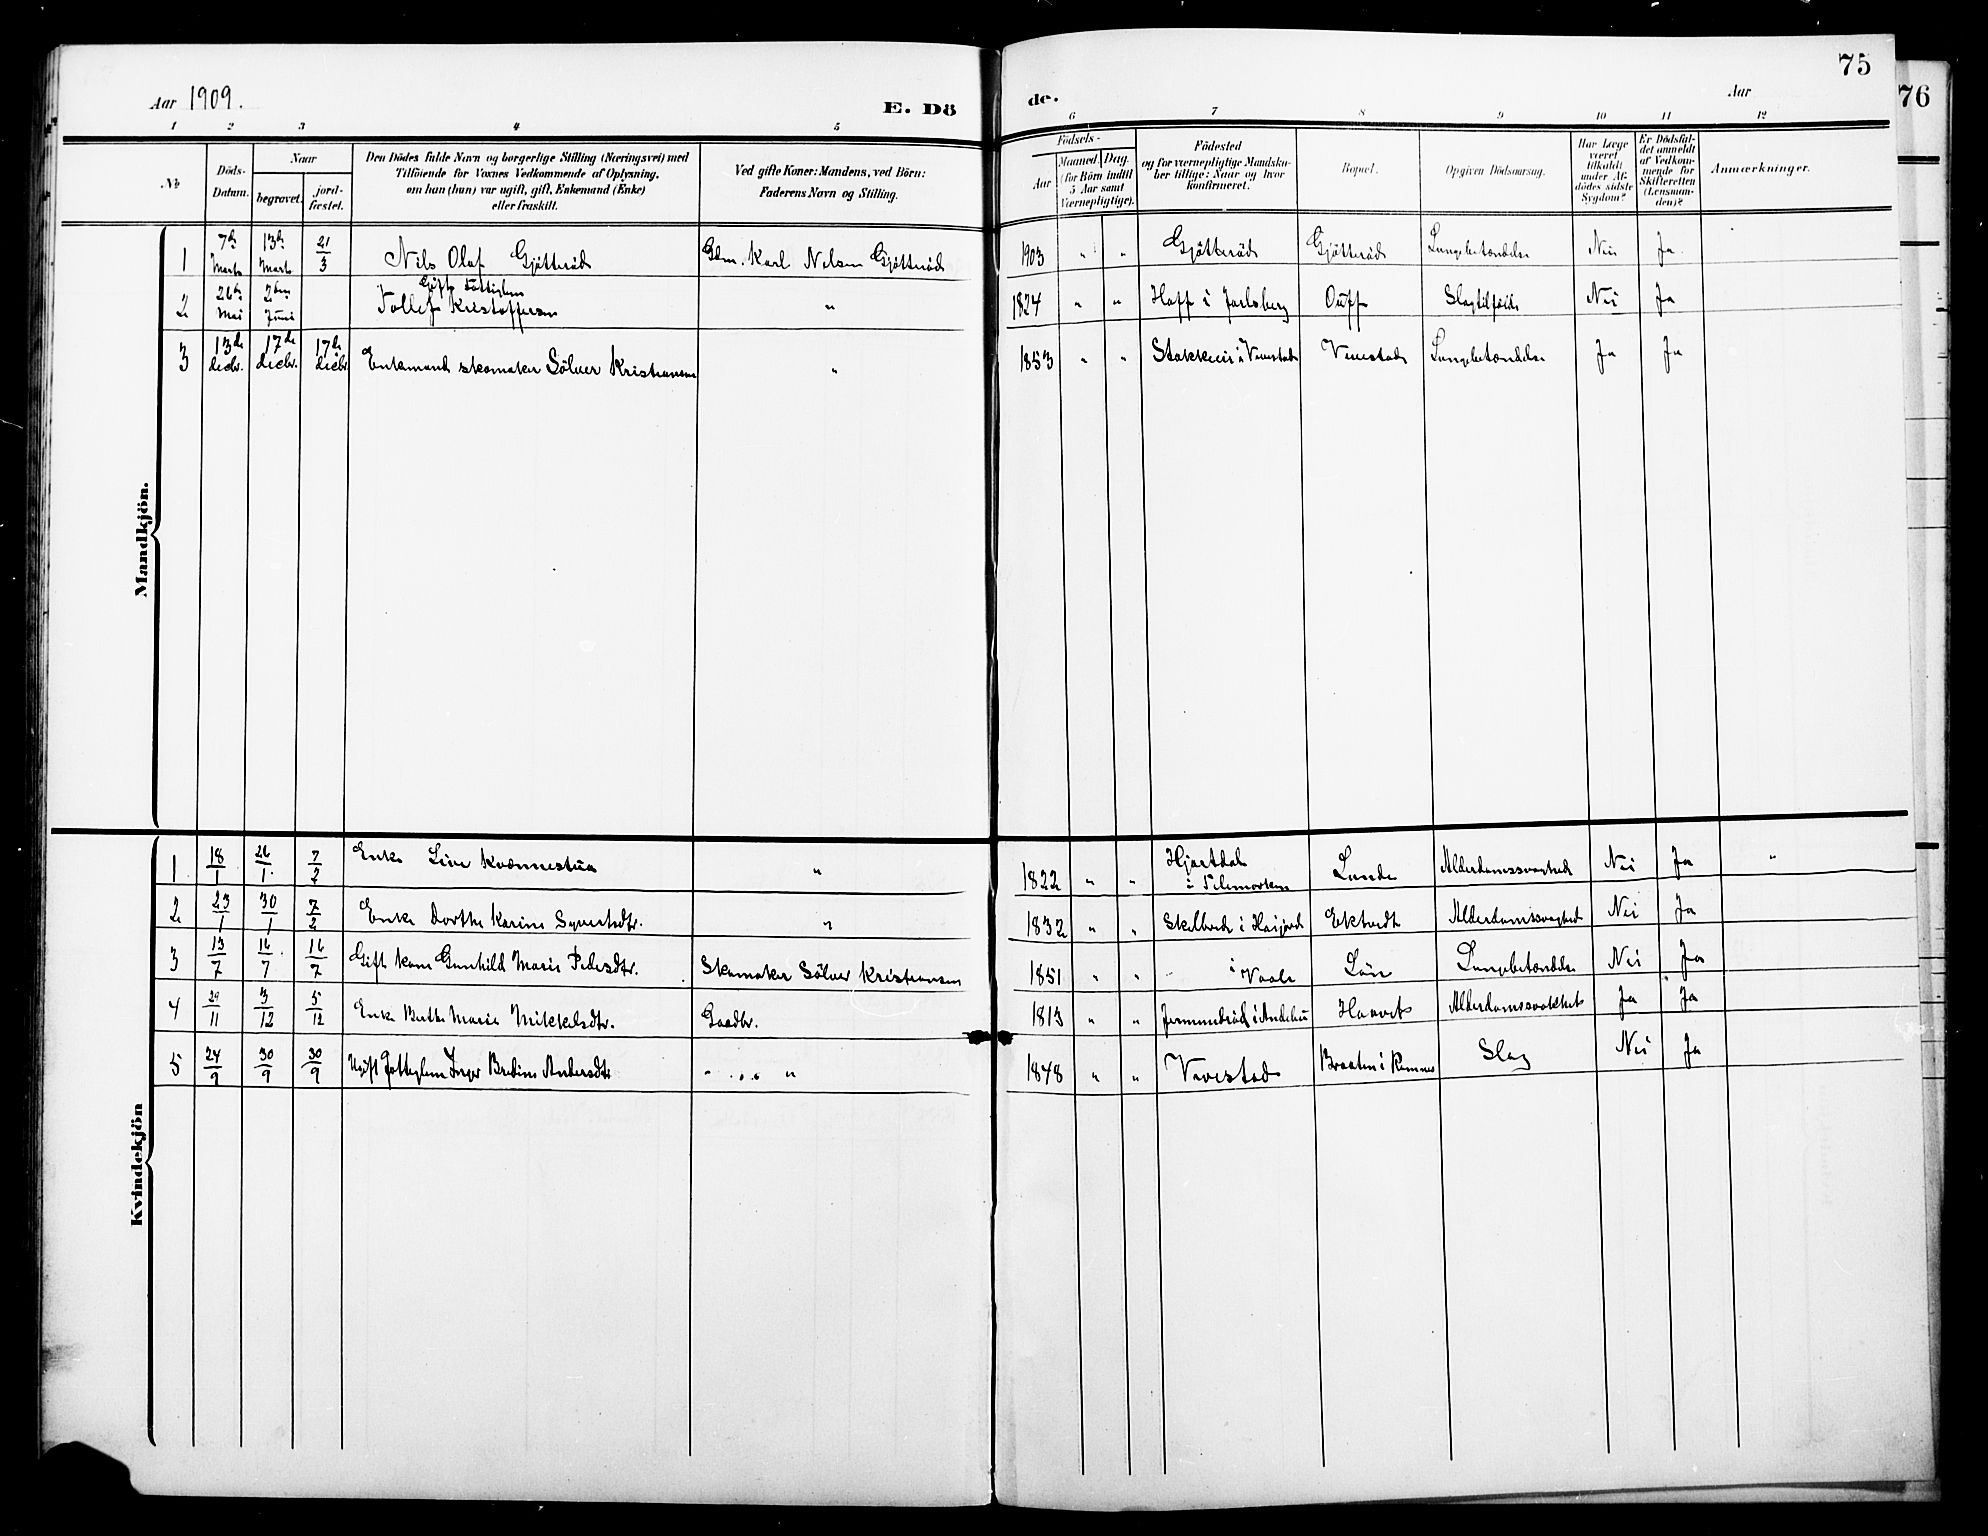 Aar 1909.
E. Dö
de.
Aar
75
76
1 2 3 4 5 6 7 8 9 10 11 12
No
Döds-
Datum.
Naar
begravet.
jord-
fæstet.
Den Dödes fulde Navn og borgerlige Stilling (Næringsvei) med
Tilföiende for Voxnes Vedkommende af Oplysning,
om han (hun) var ugift, gift, Enkemand (Enke)
eller fraskilt.
Ved gifte Koner: Mandens, ved Börn:
Faderens Navn og Stilling.
Födsels-
Aar
Maaned. Dag.
(for Börn indtil
5 Aar samt
Værnepligtige).
Födested
og for værnepligtige Mandska-
ber tillige: Naar og hvor
konfirmeret.
Bopæl.
Opgiven Dödsaarsag.
Har Læge
været
tilkaldt
under Af-
dödes sidste
Sygdom?
Er Dödsfal-
det anmeldt
af Vedkom-
mende for
Skifteretten
(Lensman-
den)?
Anmærkninger.
Mandkjön.
1 7de Marts 13de Marts 21/3 Nils Olaf Gjötteröd Gdm. Karl Nilsen Gjötteröd 1903 " " Gjötteröd Gjötteröd Lungebetændelse Nei Ja
2 26de Mai 2den Juni Gift Fattiglem
Tollef Kristoffersen " 1824 " " Hoff i Jarlsberg Ouff Slagtilfælde Nei Ja
3 13de decbr. 17de decbr. 17de decbr. Enkemand skomaker Sölver Kristiansen " 1853 " " i Vivestad Vivestad Lungebetændelse Ja Ja
Kvindekjön
1 18/1 26/1 7/2 Enke Live Kvænnestua " 1822 " " Hjartdal
i Telemarken Lunde Alderdomssvaghed Nei Ja "
2 23/1 30/1 7/2 Enke Dorthe Karine Syvertsdtr. " 1832 " " i Ektvedt Alderdomssvaghed Nei Ja
3 13/7 16/7 16/7 Gift kone Gunhild Marie Pedersdtr. Skomaker Sölver Kristiansen 1851 " " i Vaale Lungebetændelse Nei Ja
4 29/11 3/12 5/12 Enke Berthe Marie Mikkelsdtr. Gaadbr. 1813 " " i Andebu Alderdomssvakhet Ja Ja
5 24/9 30/9 30/9 Ugift Fattiglem Inger Bredine Andersdtr " " " 1848 " " Vivestad Braaten i Ramnes Slag Nei Ja